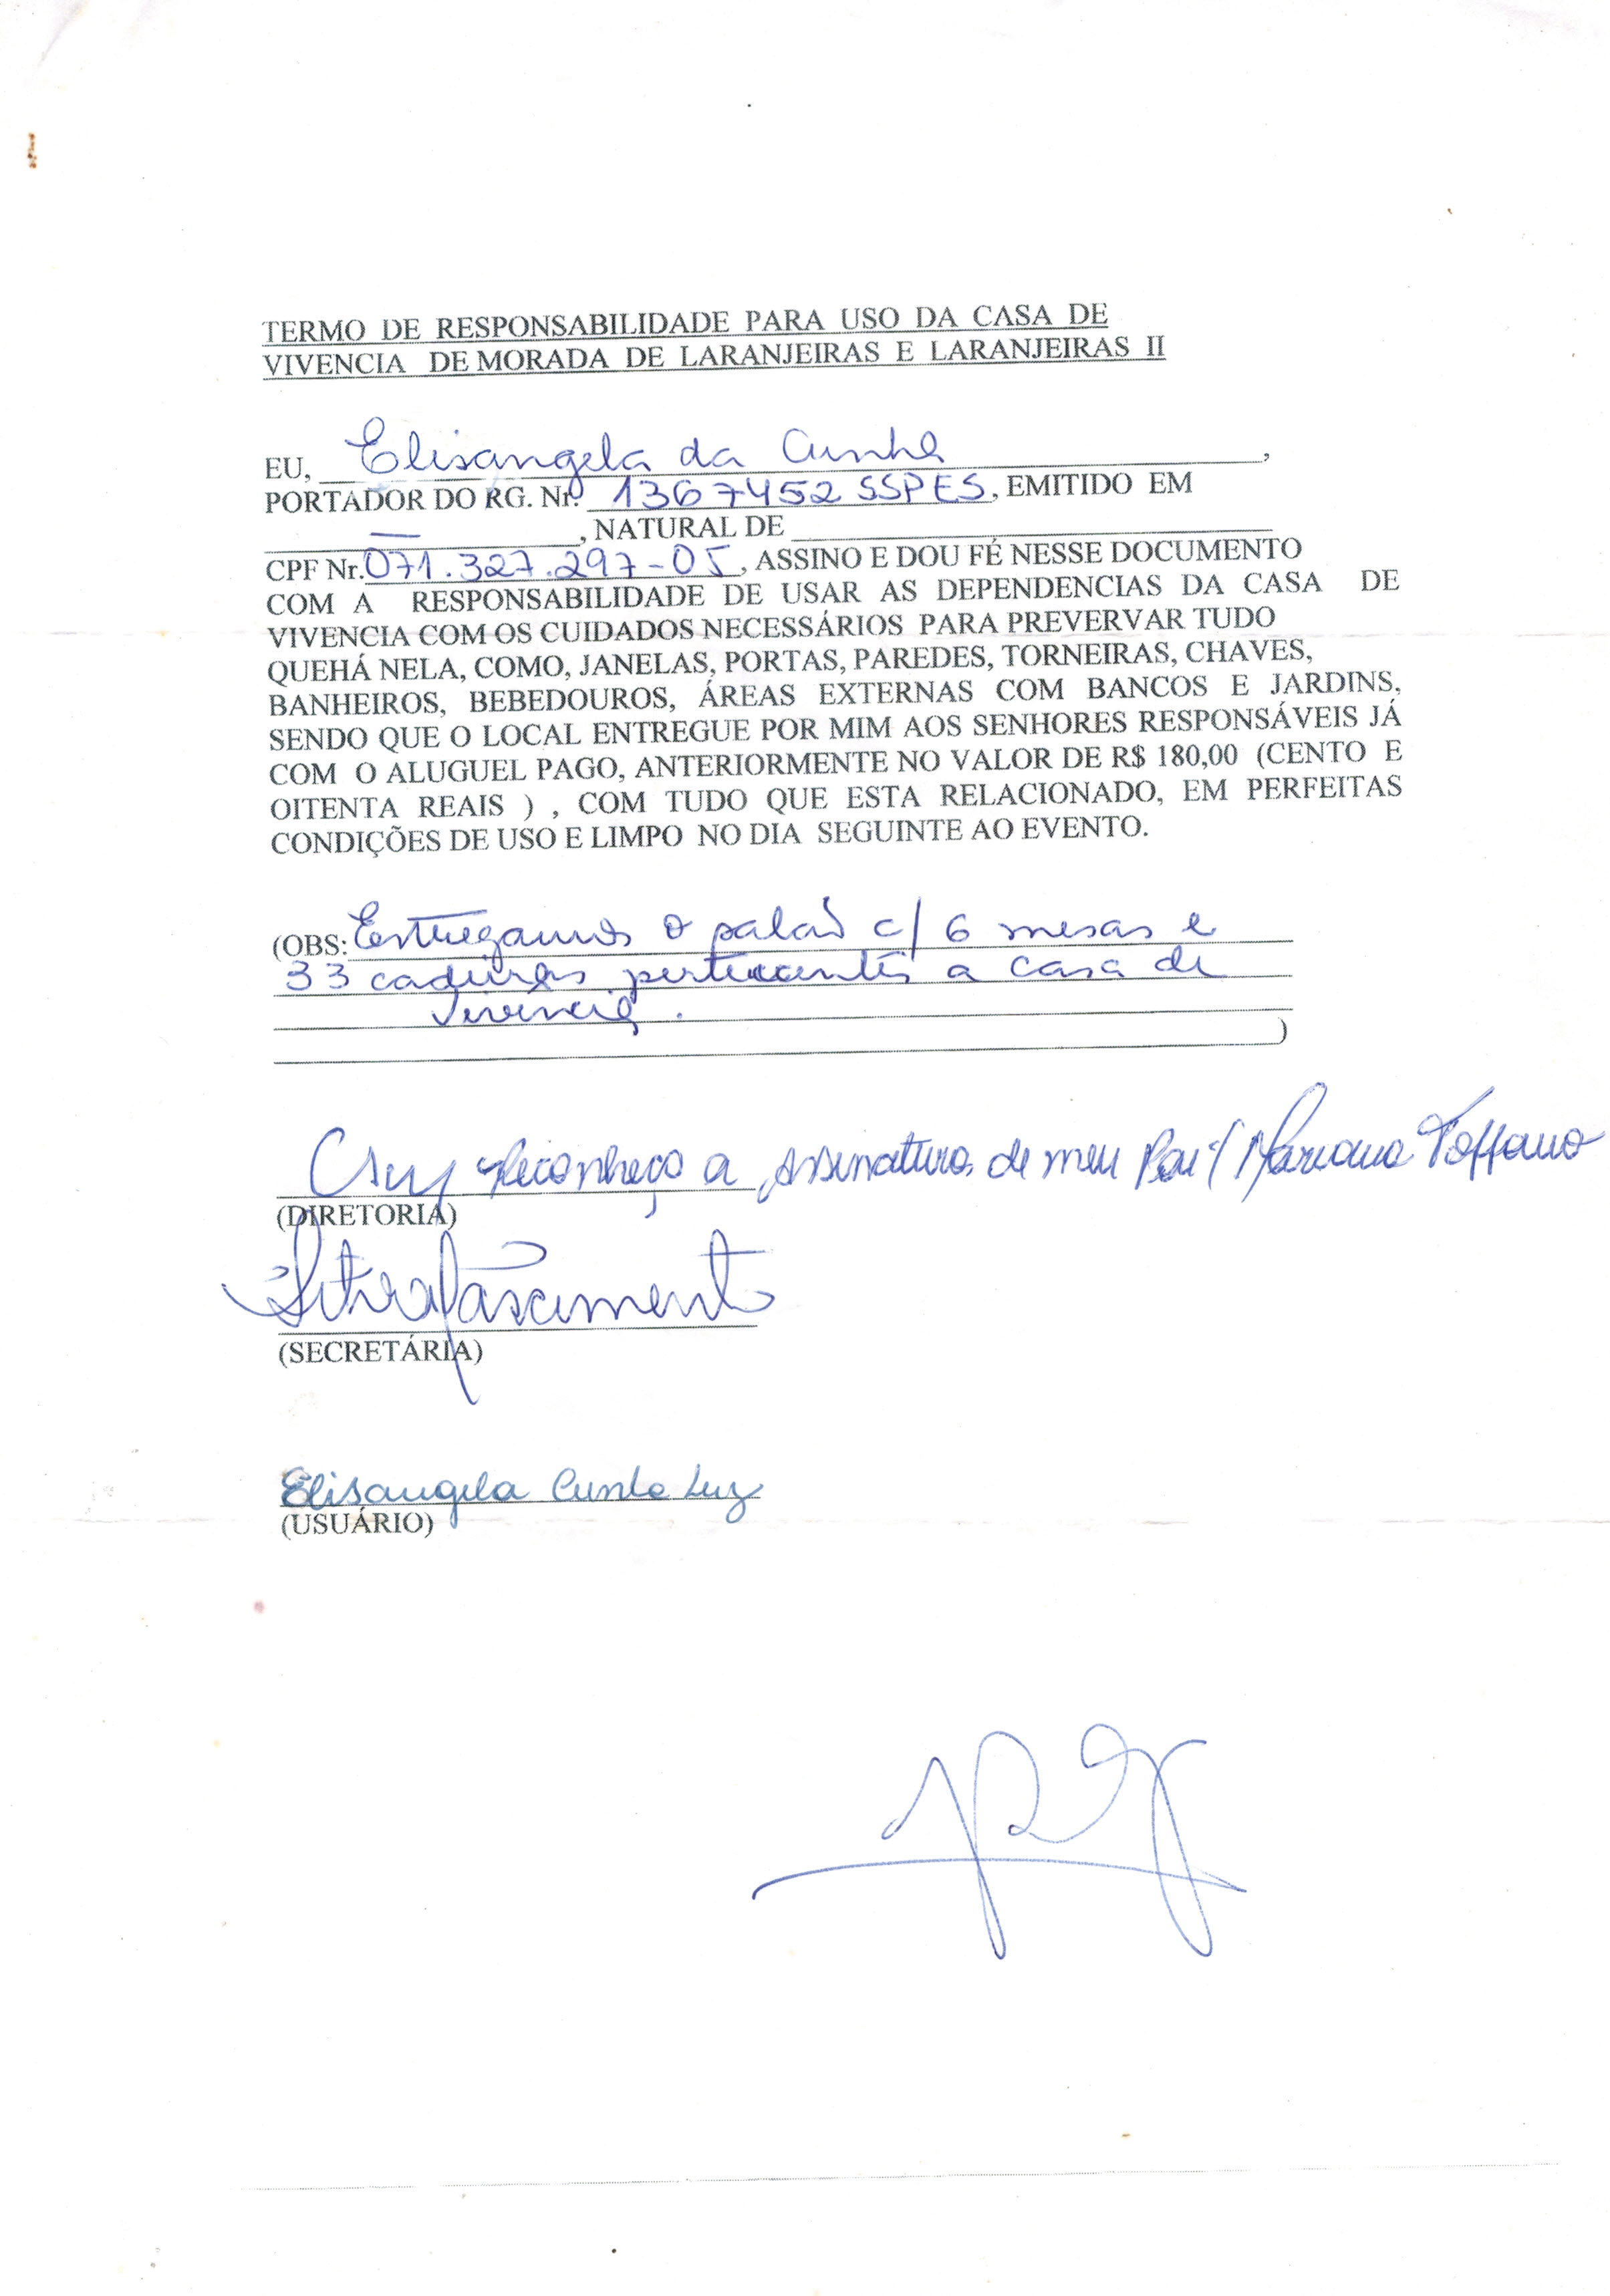 TERMO DE RESPONSABILIDADE PARA USO DA CASA DE
VIVENCIA DE MORADA DE LARANJEIRAS E LARANJEIRAS II
EU, Elisangela da Cunha,
PORTADOR DO RG. Nr. 1367452 SSPES, EMITIDO EM
—, NATURAL DE
CPF Nr. 071.327.297-05, ASSINO E DOU FÉ NESSE DOCUMENTO
COM A RESPONSABILIDADE DE USAR AS DEPENDENCIAS DA CASA DE
VIVENCIA COM OS CUIDADOS NECESSÁRIOS PARA PREVERVAR TUDO
QUEHÁ NELA, COMO, JANELAS, PORTAS, PAREDES, TORNEIRAS, CHAVES,
BANHEIROS, BEBEDOUROS, ÁREAS EXTERNAS COM BANCOS E JARDINS,
SENDO QUE O LOCAL ENTREGUE POR MIM AOS SENHORES RESPONSÁVEIS JÁ
COM O ALUGUEL PAGO, ANTERIORMENTE NO VALOR DE R$ 180,00 (CENTO E
OITENTA REAIS ) , COM TUDO QUE ESTA RELACIONADO, EM PERFEITAS
CONDIÇÕES DE USO E LIMPO NO DIA SEGUINTE AO EVENTO.
(OBS: Entregamos o salão c/ 6 mesas e
33 cadeiras pertencentes a casa de
Vivencia.
)
Reconheço a assinatura de meu Pai
(DIRETORIA)
Nascimento
(SECRETÁRIA)
Elisangela Cunha Luz
(USUÁRIO)